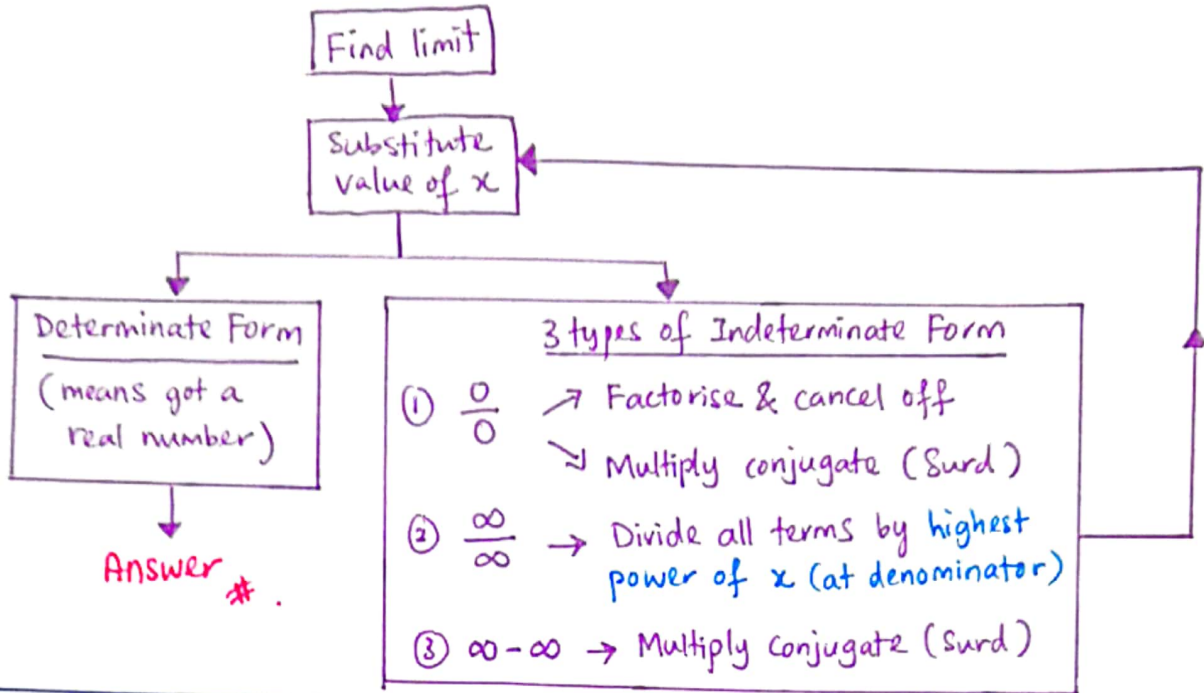 Find limit
Substitute
value of x
Determinate Form
(means got a
real number)
Answer #.
3 types of Indeterminate Form
① 0/0 ↗ Factorise & cancel off
↘ Multiply conjugate (Surd)
② ∞/∞ → Divide all terms by highest
power of x (at denominator)
③ ∞-∞ → Multiply Conjugate (Surd)